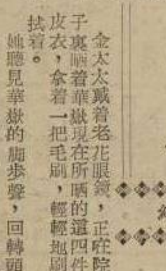 金太太戴着老花眼鏡，正在院
子裏晒着華嶽現在所晒的這四件
皮衣，拿着一把毛刷，輕輕地刷
拭着。
她聽見華嶽的脚步聲，回轉頭